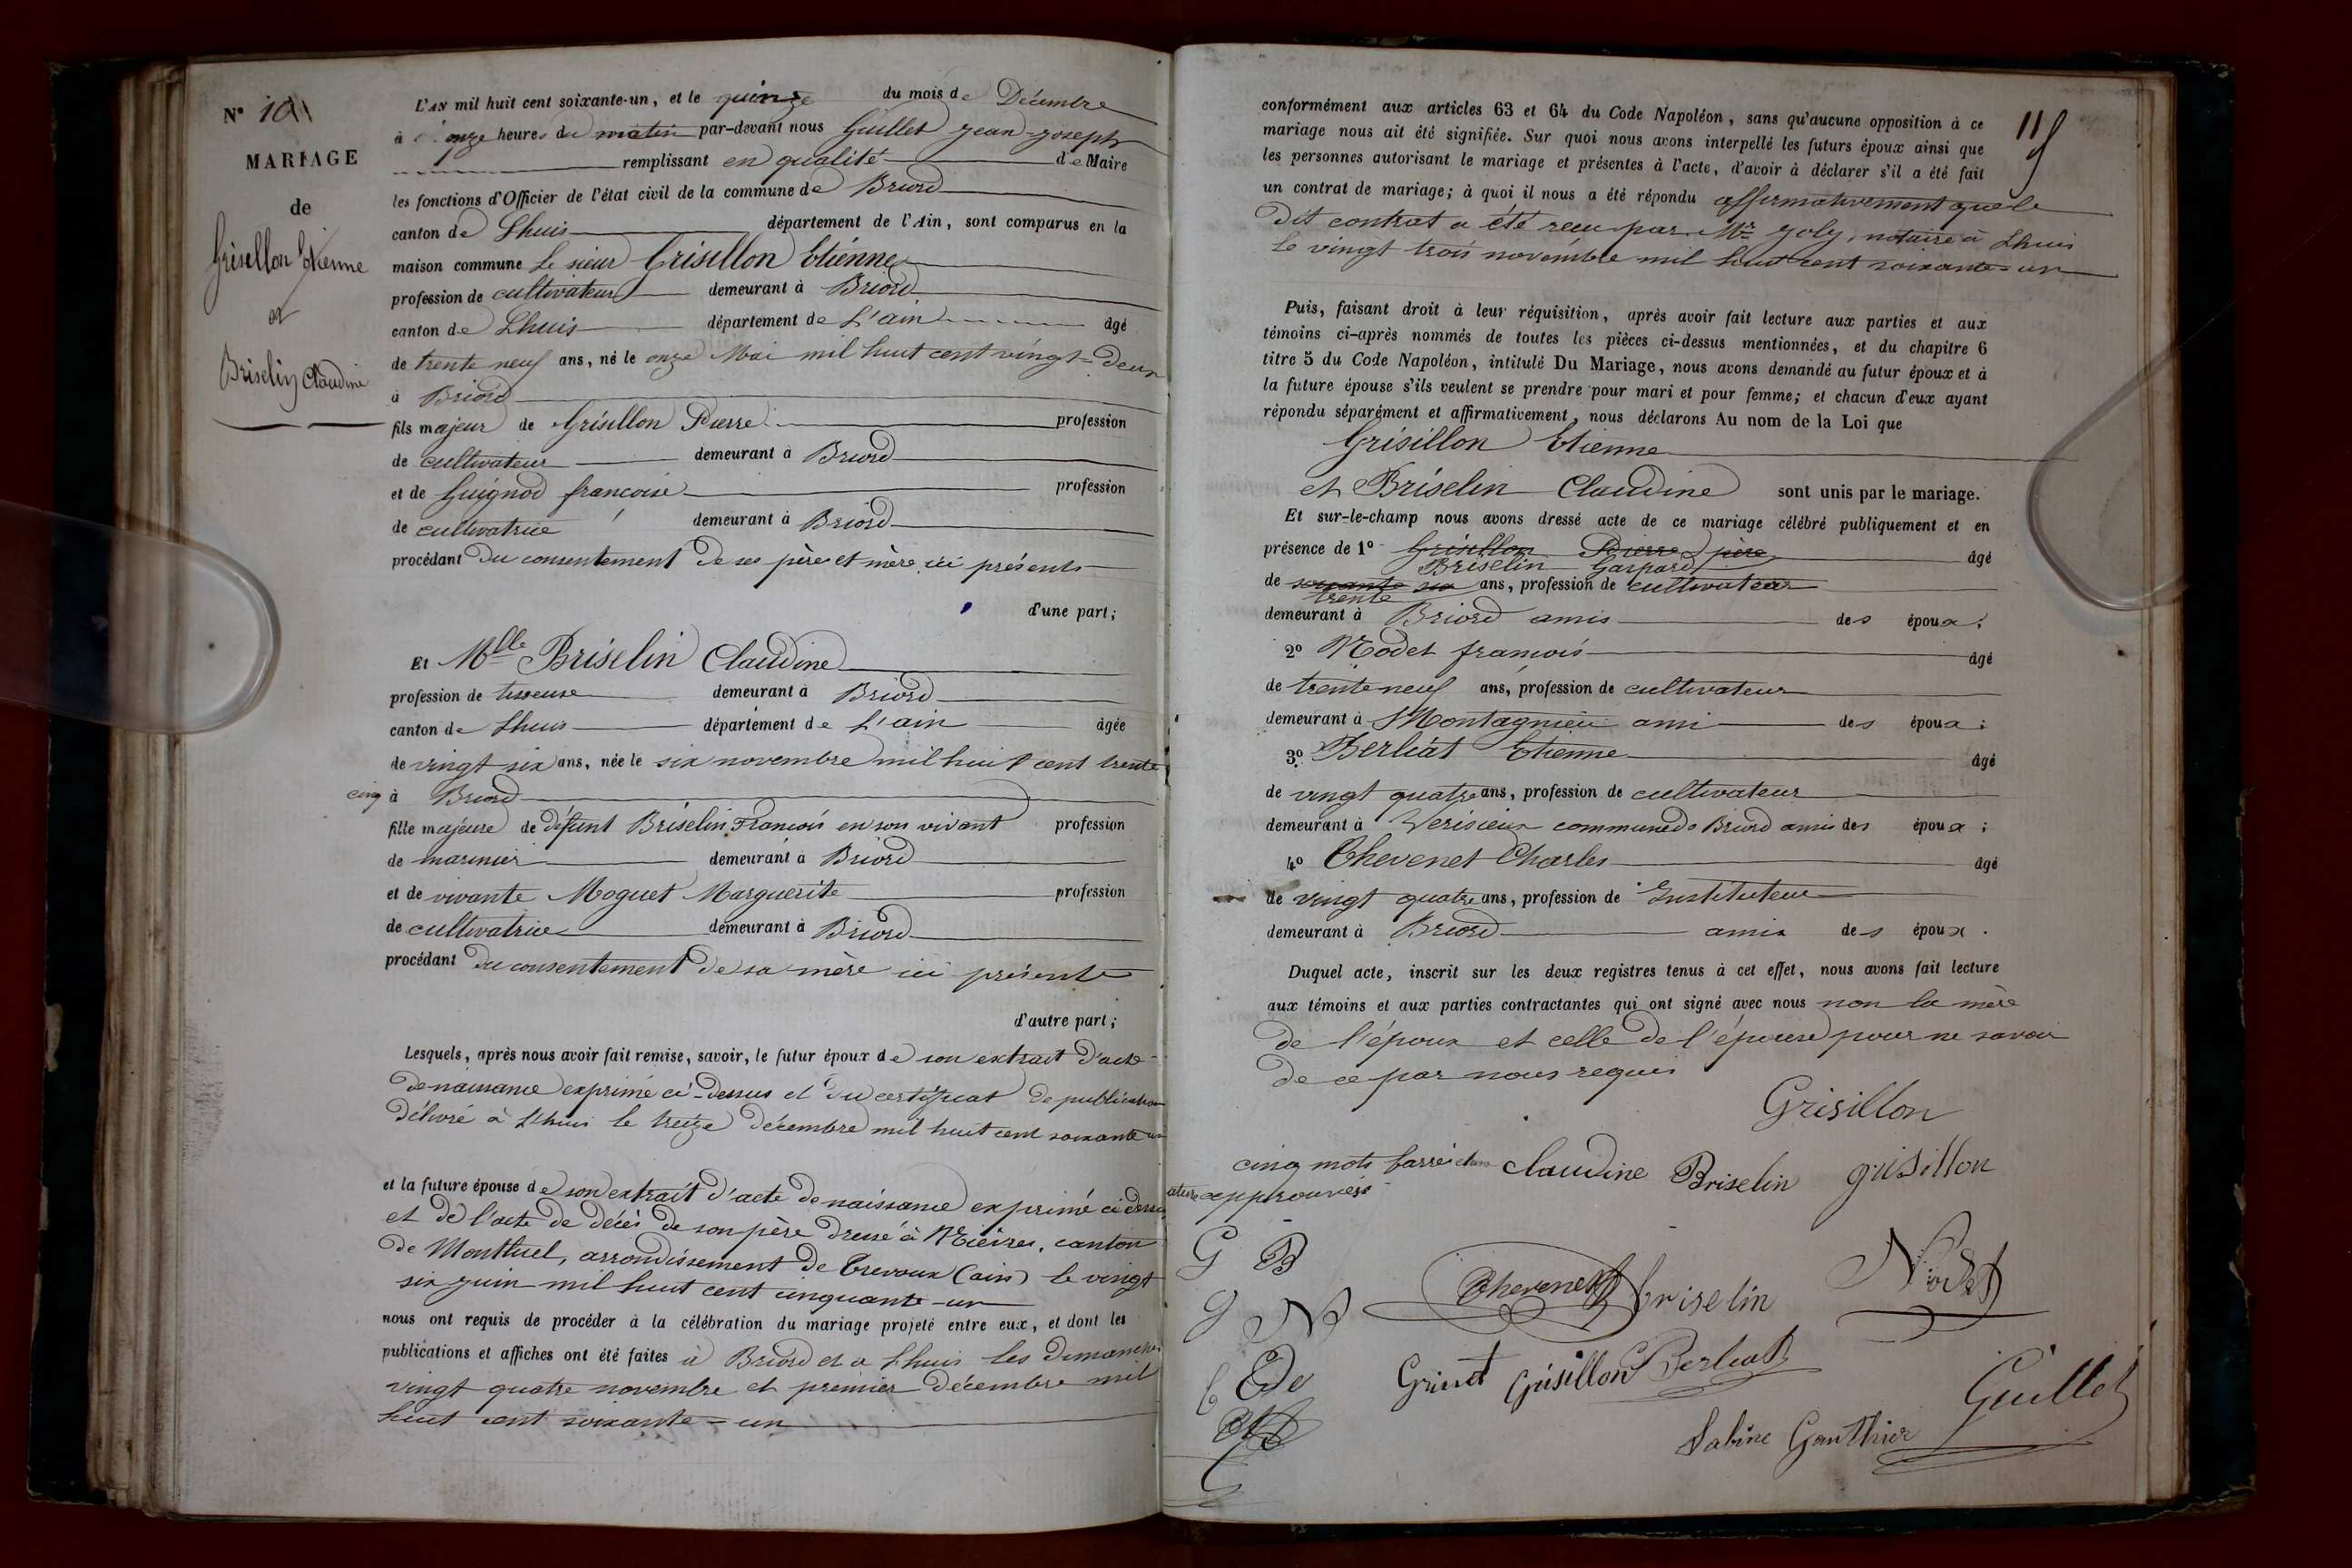 N° 10
MARIAGE
de
Grisellon Etienne
et
Briselin Claudine
L'AN mil huit cent soixante-un, et le quinze du mois de Décembre
à onze heures du matin par-devant nous Guillet Jean-Joseph
remplissant en qualité de Maire
les fonctions d'Officier de l'état civil de la commune de Briord
canton de Lhuis département de l'Ain, sont comparus en la
maison commune le sieur Grisillon Etienne
profession de cultivateur demeurant à Briord
canton de Lhuis département de L'ain âgé
de trente neuf ans, né le onze Mai mil huit cent vingt-deux
à Briord
fils majeur de Grisillon Pierre profession
de cultivateur demeurant à Briord
et de Guignod francoise profession
de cultivatrice demeurant à Briord
procédant du consentement de ses père et mère ici présents
d'une part;
Et Mlle Briselin Claudine
profession de tisseuse demeurant à Briord
canton de Lhuis département de L'ain âgée
de vingt six ans, née le six novembre mil huit cent trente
cinq à Briord
fille majeure de défunt Briselin Francois en son vivant profession
de marinier demeurant à Briord
et de vivante Moguet Marguerite profession
de cultivatrice demeurant à Briord
procédant du consentement de sa mère ici présente
d'autre part;
Lesquels, après nous avoir fait remise, savoir, le futur époux de son extrait d'acte
de naissance exprimé ci-dessus et du certificat de publication
délivré à Lhuis le treize décembre mil huit cent soixante un
et la future épouse de son extrait d'acte de naissance exprimé ci dessus
et de l'acte de décès de son père dressé à canton
de Montluel, arrondissement de Trevoux (ain) le vingt
six juin mil huit cent cinquante-un
nous ont requis de procéder à la célébration du mariage projeté entre eux, et dont les
publications et affiches ont été faites à Briord et a Lhuis les dimanches
vingt quatre novembre et premier décembre mil
huit cent soixante=un
conformément aux articles 63 et 64 du Code Napoléon, sans qu'aucune opposition à ce
mariage nous ait été signifiée. Sur quoi nous avons interpellé les futurs époux ainsi que
les personnes autorisant le mariage et présentes à l'acte, d'avoir à déclarer s'il a été fait
un contrat de mariage; à quoi il nous a été répondu affirmativement que le
dit contrat a été recu par Mr Joly, notaire à Lhuis
le vingt trois novembre mil huit cent soixante=un
Puis, faisant droit à leur réquisition, après avoir fait lecture aux parties et aux
témoins ci-après nommés de toutes les pièces ci-dessus mentionnées, et du chapitre 6
titre 5 du Code Napoléon, intitulé Du Mariage, nous avons demandé au futur époux et à
la future épouse s'ils veulent se prendre pour mari et pour femme; et chacun d'eux ayant
répondu séparément et affirmativement, nous déclarons Au nom de la Loi que
Grisillon Etienne
et Briselin Claudine sont unis par le mariage.
Et sur-le-champ nous avons dressé acte de ce mariage célébré publiquement et en
présence de 1° Grisillon Pierre père âgé
Briselin Gaspard
de soixante six ans, profession de cultivateur
trente
demeurant à Briord amis des époux;
2° Nodet francois âgé
de trente neuf ans, profession de cultivateur
demeurant à Montagnieu ami des époux;
3° Berliat Etienne âgé
de vingt quatre ans, profession de cultivateur
demeurant à Verisieux commune de Briord amis des époux;
4° Thevenet Charles âgé
de vingt quatre ans, profession de Instituteur
demeurant à Briord amis des époux.
Duquel acte, inscrit sur les deux registres tenus à cet effet, nous avons fait lecture
aux témoins et aux parties contractantes qui ont signé avec nous non la mère
de l'époux et celle de l'épouse pour ne savoir
de ce par nous requis
Grisillon
cinq mots barrés
approuvés
Claudine Briselin grisillon
G B
Thevenet briselin Nodet
g N
Grisillon Berliat
Guillet
Sabine Gauthier